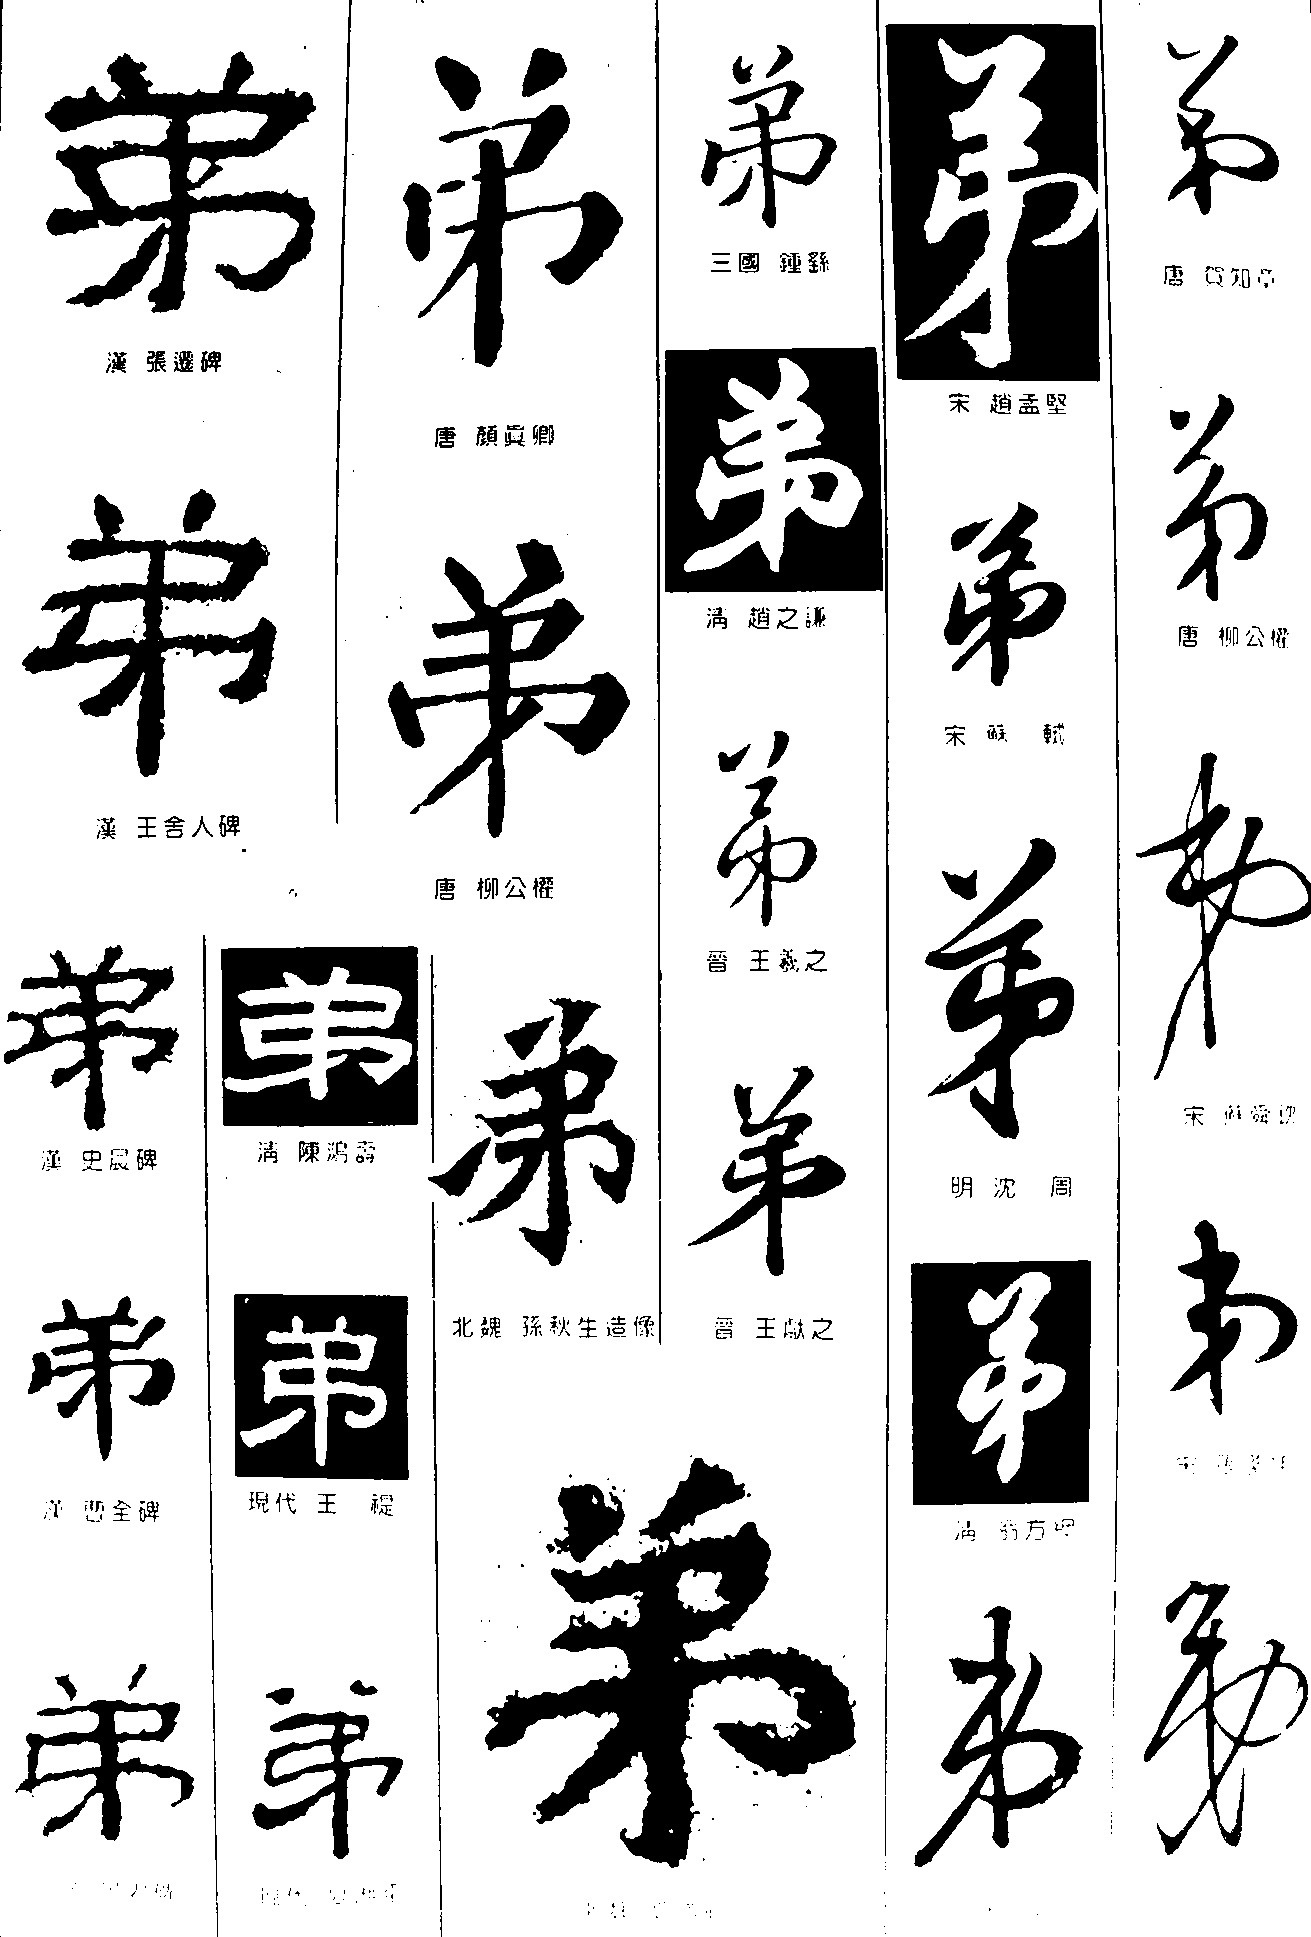 弟
漢 張遷碑
弟
漢 王舍人碑
弟
漢 史晨碑
弟
漢 曹全碑
弟
弟
清 陳鴻壽
弟
現代 王 禔
弟
弟
唐 顏眞卿
弟
唐 柳公權
弟
北魏 孫秋生造像
弟
弟
三國 鍾繇
弟
清 趙之謙
弟
晉 王羲之
弟
晉 王獻之
弟
宋 趙孟堅
弟
宋 蘇 軾
弟
明 沈 周
弟
清 翁方綱
弟
弟
唐 賀知章
弟
唐 柳公權
弟
宋 蘇舜欽
弟
弟